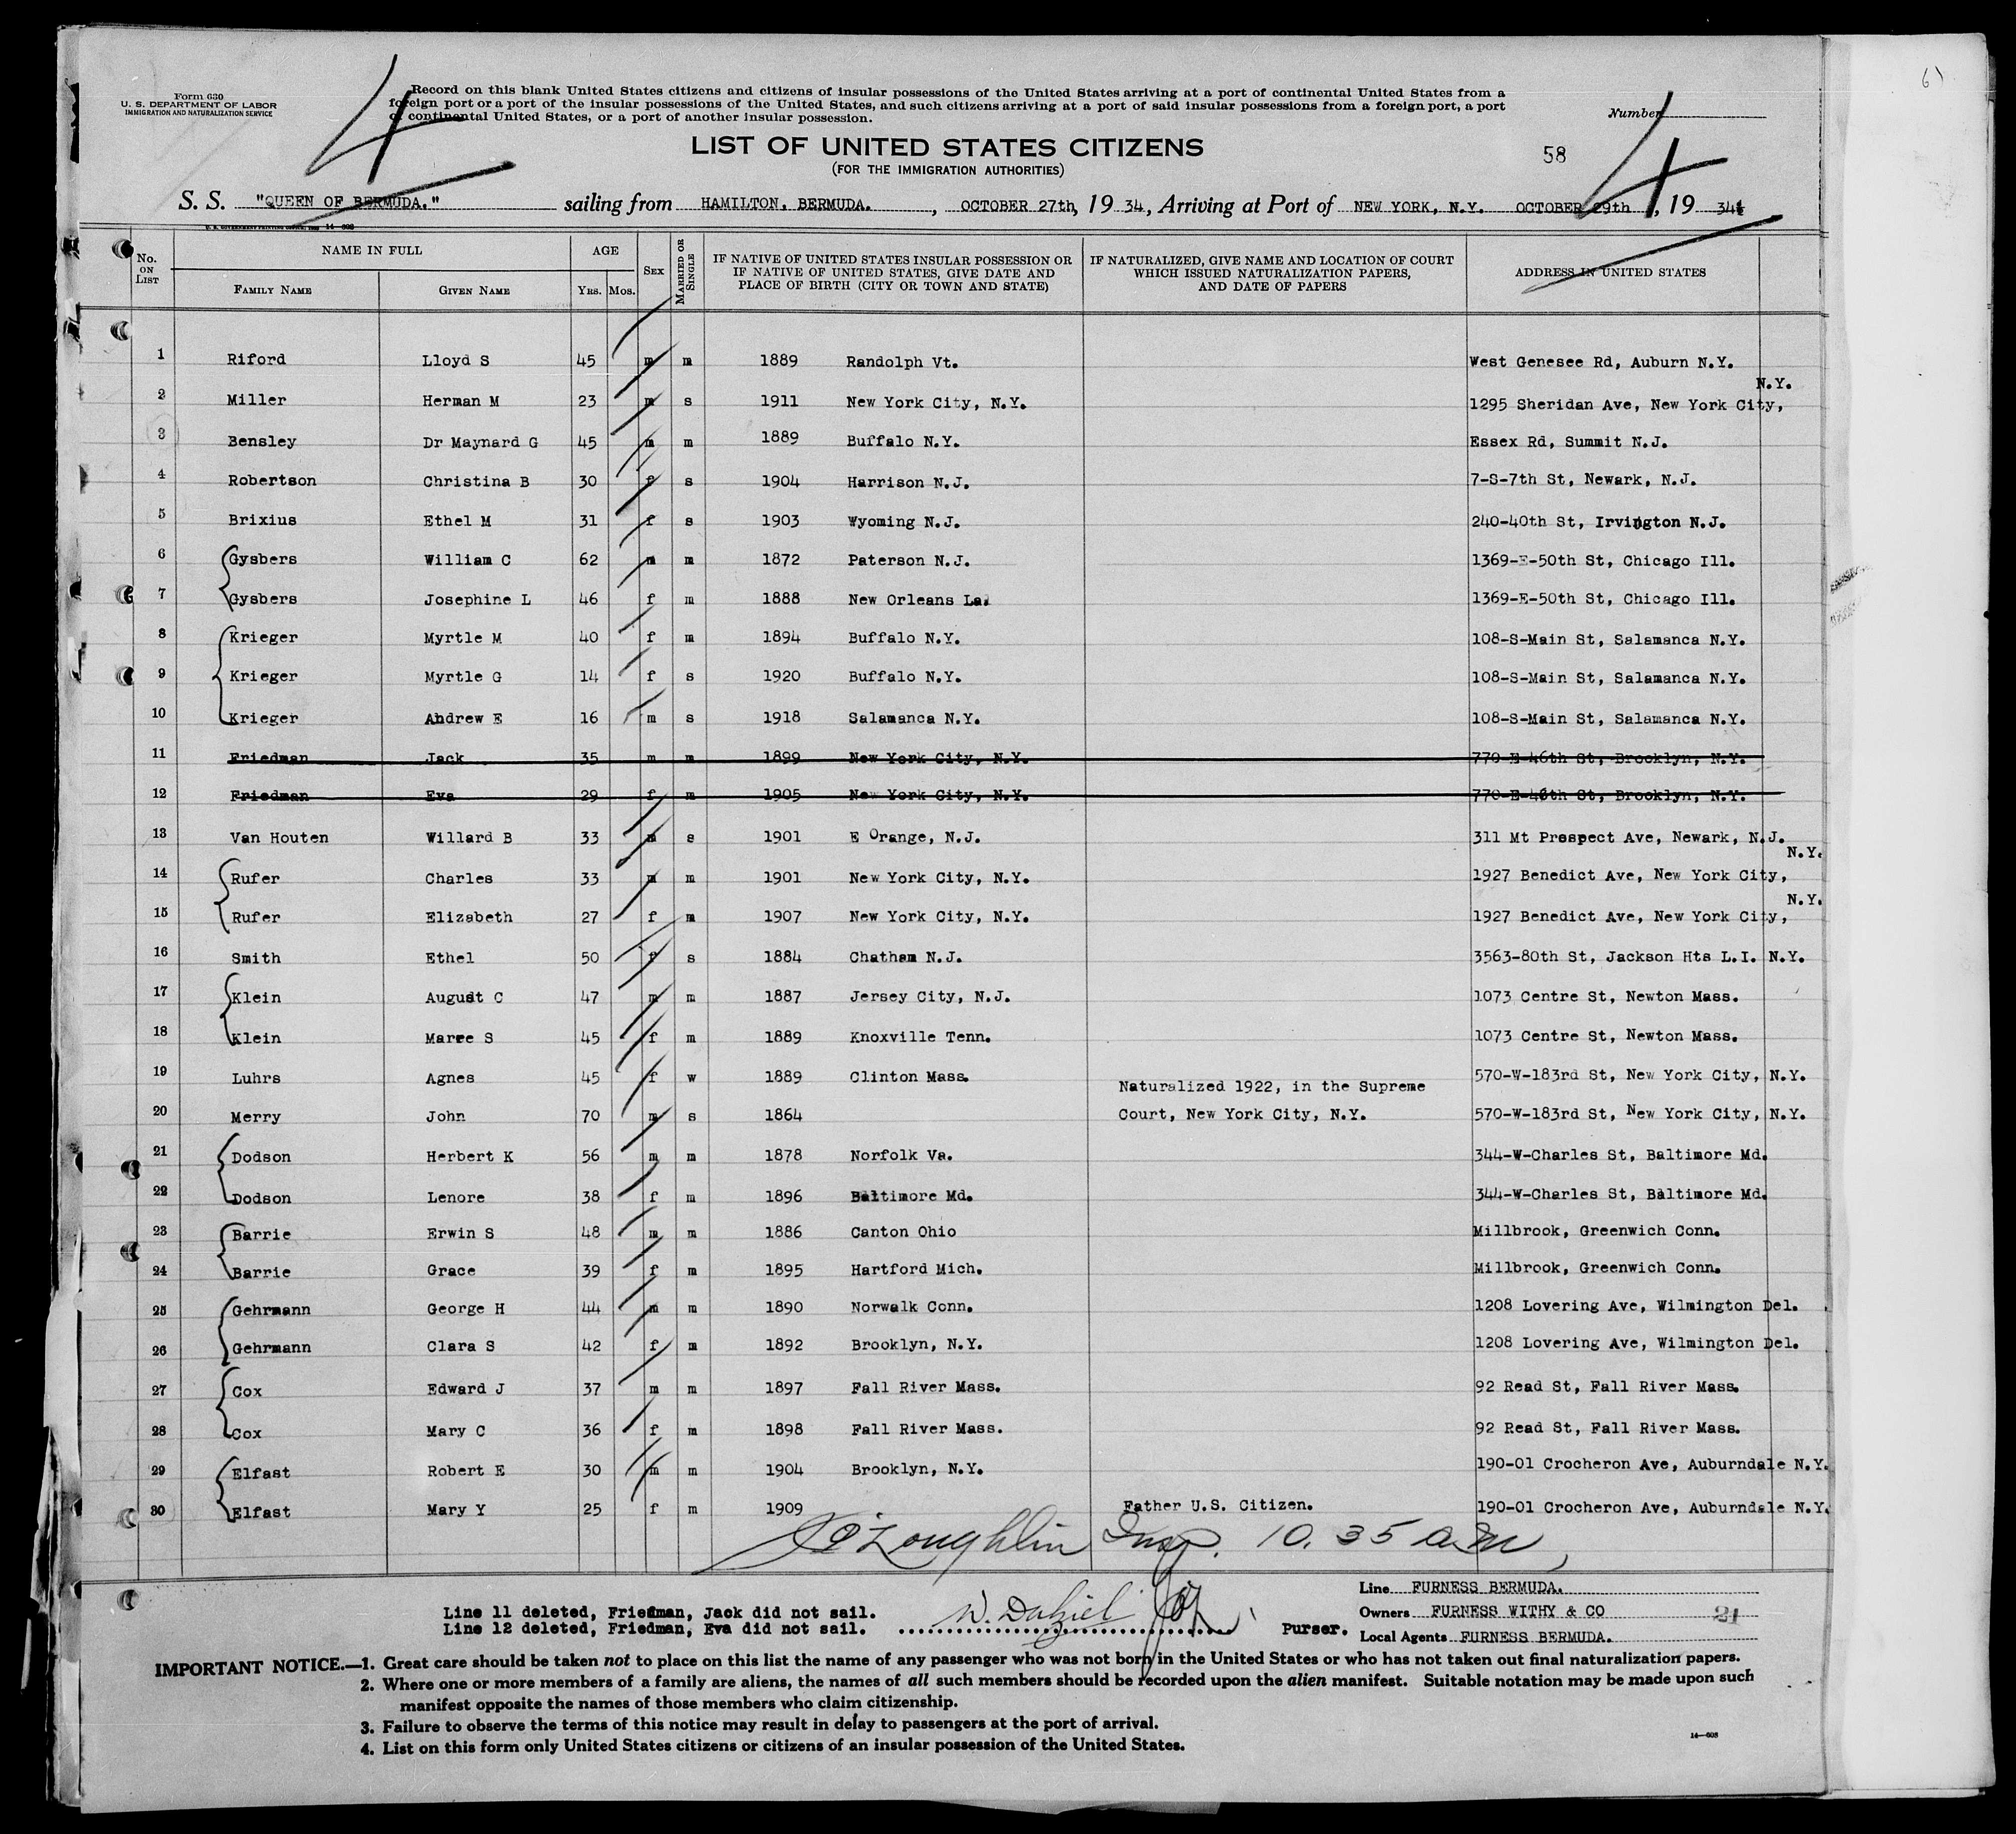 61
Form 630
U. S. DEPARTMENT OF LABOR
IMMIGRATION AND NATURALIZATION SERVICE
4
Record on this blank United States citizens and citizens of insular possessions of the United States arriving at a port of continental United States from a
foreign port or a port of the insular possessions of the United States, and such citizens arriving at a port of said insular possessions from a foreign port, a port
of continental United States, or a port of another insular possession.
Number
LIST OF UNITED STATES CITIZENS
(FOR THE IMMIGRATION AUTHORITIES)
58
4
S. S. "QUEEN OF BERMUDA." sailing from HAMILTON, BERMUDA. , OCTOBER 27th, 19 34, Arriving at Port of NEW YORK, N.Y. OCTOBER 29th, 19 34
No. ON LIST NAME IN FULL AGE SEX MARRIED OR SINGLE IF NATIVE OF UNITED STATES INSULAR POSSESSION OR IF NATIVE OF UNITED STATES, GIVE DATE AND PLACE OF BIRTH (CITY OR TOWN AND STATE) IF NATURALIZED, GIVE NAME AND LOCATION OF COURT WHICH ISSUED NATURALIZATION PAPERS, AND DATE OF PAPERS ADDRESS IN UNITED STATES
FAMILY NAME GIVEN NAME YRS. MOS.
1 Riford Lloyd S 45 m m 1889 Randolph Vt. West Genesee Rd, Auburn N.Y.
2 Miller Herman M 23 m s 1911 New York City, N.Y. 1295 Sheridan Ave, New York City, N.Y.
3 Bensley Dr Maynard G 45 m m 1889 Buffalo N.Y. Essex Rd, Summit N.J.
4 Robertson Christina B 30 f s 1904 Harrison N.J. 7-S-7th St, Newark, N.J.
5 Brixius Ethel M 31 f s 1903 Wyoming N.J. 240-40th St, Irvington N.J.
6 Gysbers William C 62 m m 1872 Paterson N.J. 1369-E-50th St, Chicago Ill.
7 Gysbers Josephine L 46 f m 1888 New Orleans La. 1369-E-50th St, Chicago Ill.
8 Krieger Myrtle M 40 f m 1894 Buffalo N.Y. 108-S-Main St, Salamanca N.Y.
9 Krieger Myrtle G 14 f s 1920 Buffalo N.Y. 108-S-Main St, Salamanca N.Y.
10 Krieger Andrew E 16 m s 1918 Salamanca N.Y. 108-S-Main St, Salamanca N.Y.
11 Friedman Jack 35 m m 1899 New York City, N.Y. 770-E-46th St, Brooklyn, N.Y.
12 Friedman Eva 29 f m 1905 New York City, N.Y. 770-E-46th St, Brooklyn, N.Y.
13 Van Houten Willard B 33 m s 1901 E Orange, N.J. 311 Mt Prospect Ave, Newark, N.J.
14 Rufer Charles 33 m m 1901 New York City, N.Y. 1927 Benedict Ave, New York City, N.Y.
15 Rufer Elizabeth 27 f m 1907 New York City, N.Y. 1927 Benedict Ave, New York City, N.Y.
16 Smith Ethel 50 f s 1884 Chatham N.J. 3563-80th St, Jackson Hts L.I. N.Y.
17 Klein August C 47 m m 1887 Jersey City, N.J. 1073 Centre St, Newton Mass.
18 Klein Marre S 45 f m 1889 Knoxville Tenn. 1073 Centre St, Newton Mass.
19 Luhrs Agnes 45 f w 1889 Clinton Mass. 570-W-183rd St, New York City, N.Y.
Naturalized 1922, in the Supreme
20 Merry John 70 m s 1864 Court, New York City, N.Y. 570-W-183rd St, New York City, N.Y.
21 Dodson Herbert K 56 m m 1878 Norfolk Va. 344-W-Charles St, Baltimore Md.
22 Dodson Lenore 38 f m 1896 Baltimore Md. 344-W-Charles St, Baltimore Md.
23 Barrie Erwin S 48 m m 1886 Canton Ohio Millbrook, Greenwich Conn.
24 Barrie Grace 39 f m 1895 Hartford Mich. Millbrook, Greenwich Conn.
25 Gehrmann George H 44 m m 1890 Norwalk Conn. 1208 Lovering Ave, Wilmington Del.
26 Gehrmann Clara S 42 f m 1892 Brooklyn, N.Y. 1208 Lovering Ave, Wilmington Del.
27 Cox Edward J 37 m m 1897 Fall River Mass. 92 Read St, Fall River Mass.
28 Cox Mary C 36 f m 1898 Fall River Mass. 92 Read St, Fall River Mass.
29 Elfast Robert E 30 m m 1904 Brooklyn, N.Y. 190-01 Crocheron Ave, Auburndale N.Y.
30 Elfast Mary Y 25 f m 1909 Father U.S. Citizen. 190-01 Crocheron Ave, Auburndale N.Y.
O'Loughlin Insp. 10.35 am
Line 11 deleted, Friedman, Jack did not sail.
Line 12 deleted, Friedman, Eva did not sail.
W. Dalziel Purser.
Line FURNESS BERMUDA.
Owners FURNESS WITHY & CO
Local Agents FURNESS BERMUDA.
21
IMPORTANT NOTICE.—1. Great care should be taken not to place on this list the name of any passenger who was not born in the United States or who has not taken out final naturalization papers.
2. Where one or more members of a family are aliens, the names of all such members should be recorded upon the alien manifest. Suitable notation may be made upon such
manifest opposite the names of those members who claim citizenship.
3. Failure to observe the terms of this notice may result in delay to passengers at the port of arrival.
4. List on this form only United States citizens or citizens of an insular possession of the United States.
14—608